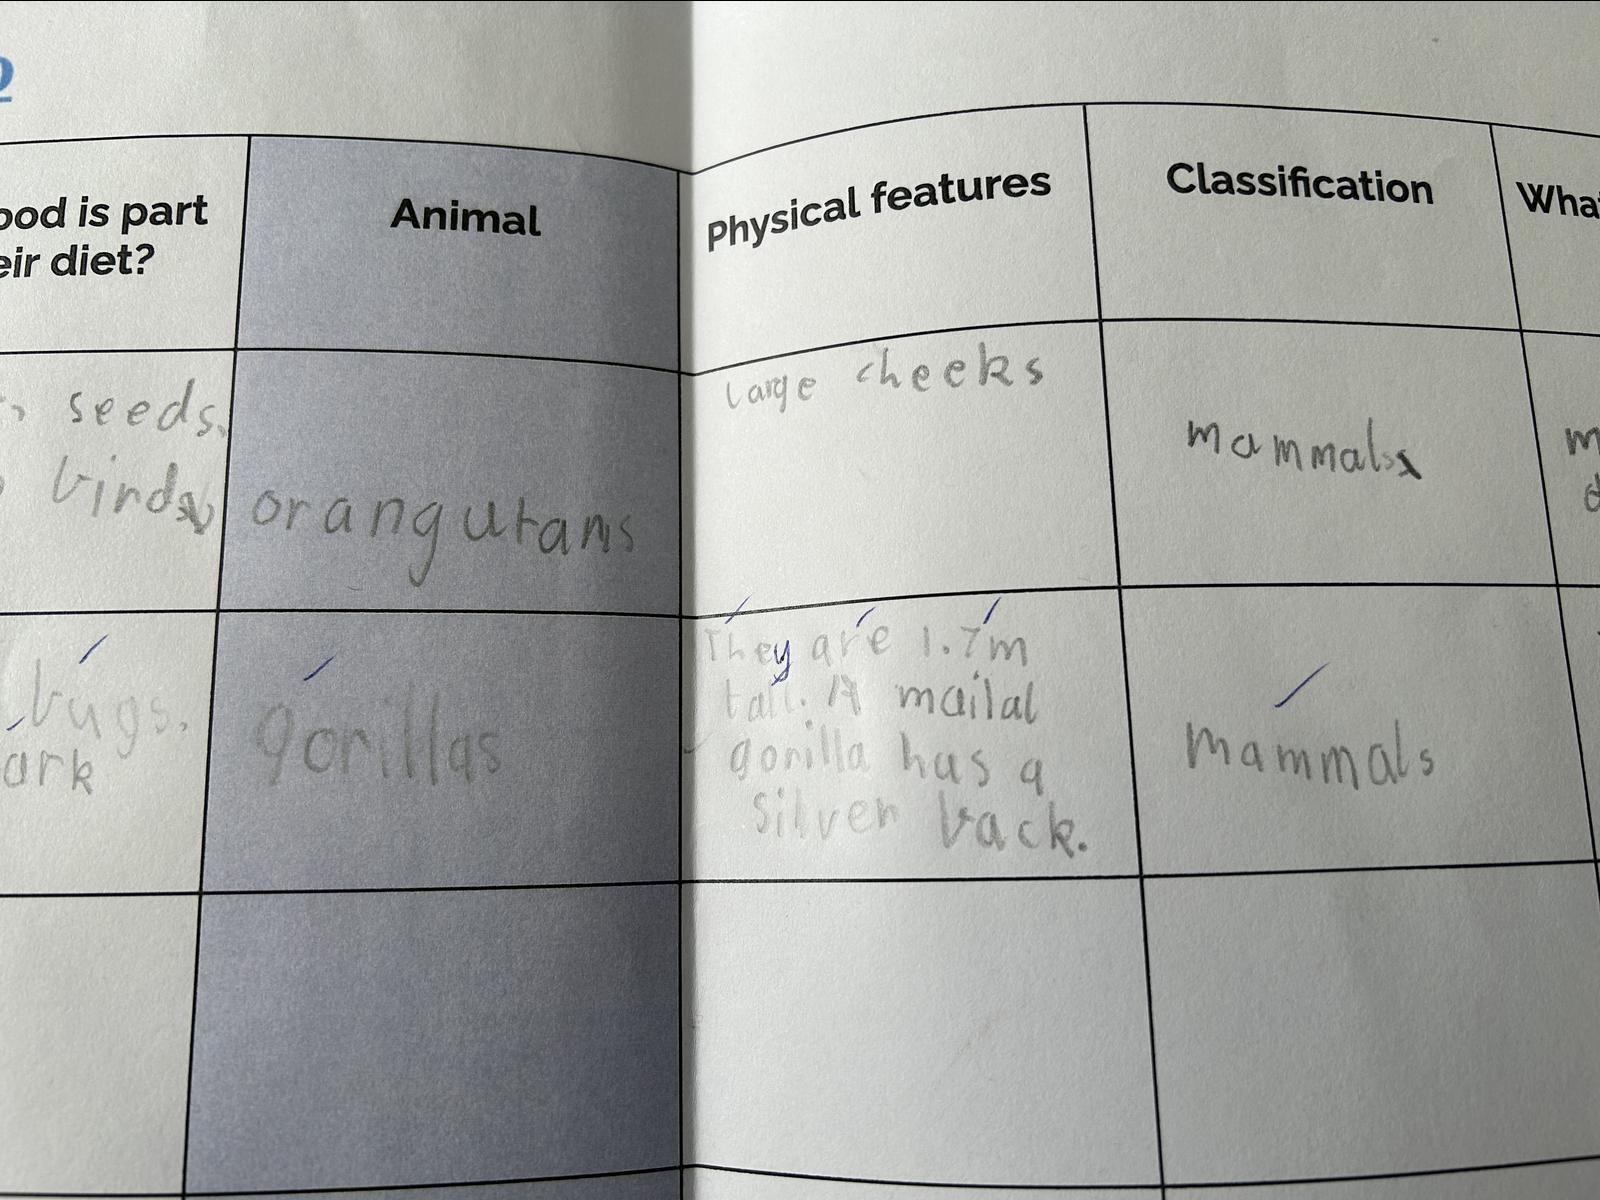 ood is part
eir diet?
Animal
Physical features
Classification
What
seeds,
birds
orangutans
large cheeks
mammals
m
d
bugs,
ark
gorillas
They are 1.7m
tall. A mailal
gorilla has a
silver back.
mammals